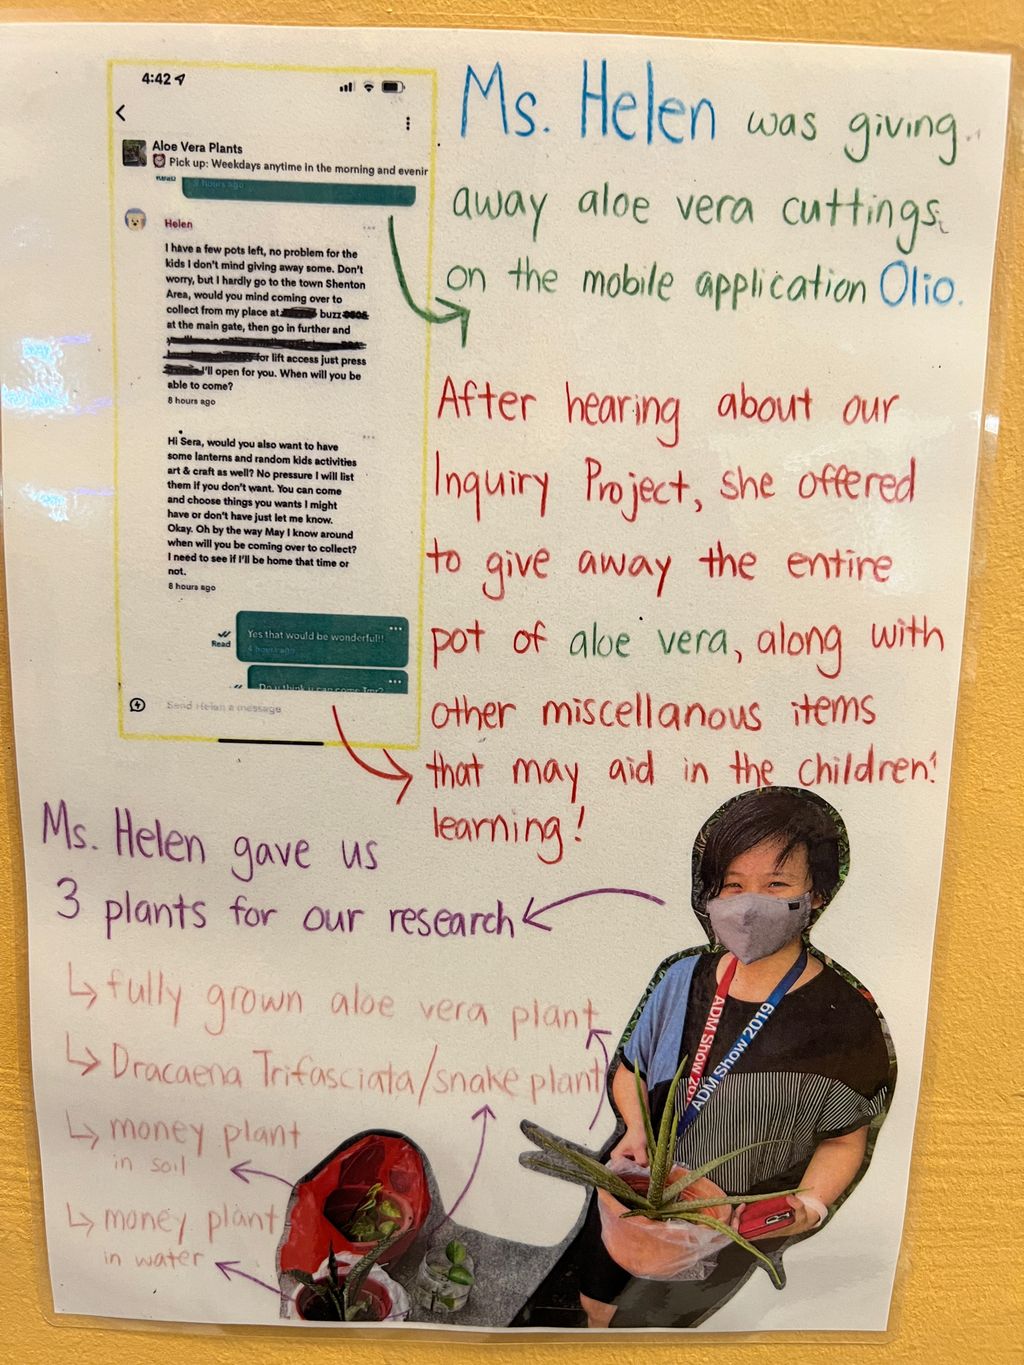 4:42
Aloe Vera Plants
Pick up: Weekdays anytime in the morning and evenir
8 hours ago
Helen
I have a few pots left, no problem for the
kids I don't mind giving away some. Don't
worry, but I hardly go to the town Shenton
Area, would you mind coming over to
collect from my place at buzz
at the main gate, then go in further and
for lift access just press
I'll open for you. When will you be
able to come?
8 hours ago
Hi Sera, would you also want to have
some lanterns and random kids activities
art & craft as well? No pressure I will list
them if you don't want. You can come
and choose things you wants I might
have or don't have just let me know.
Okay. Oh by the way May I know around
when will you be coming over to collect?
I need to see if I'll be home that time or
not.
8 hours ago
Yes that would be wonderful!!
4 hours ago
Read
Do u think u can come 1pm?
Send Helen a message
Ms. Helen was giving
away aloe vera cuttings
on the mobile application Olio.
After hearing about our
Inquiry Project, she offered
to give away the entire
pot of aloe vera, along with
other miscellanous items
that may aid in the children's
learning!
Ms. Helen gave us
3 plants for our research
fully grown aloe vera plant
Dracaena Trifasciata/snake plant
money plant
in soil
money plant
in water
ADM Show 20
ADM Show 2019